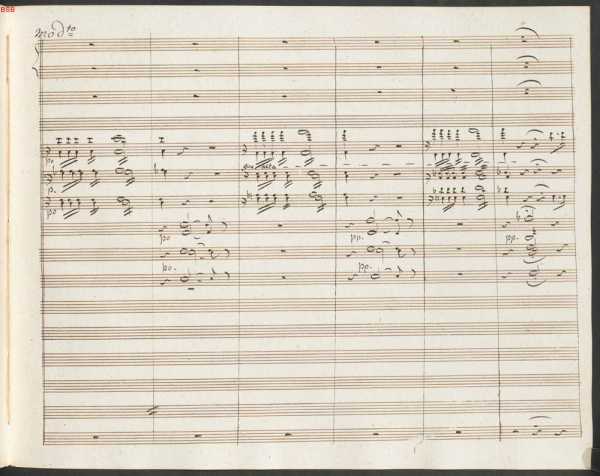 BSB
Modto
po
p.
po
pp.
pp.
po.
pp.
po.